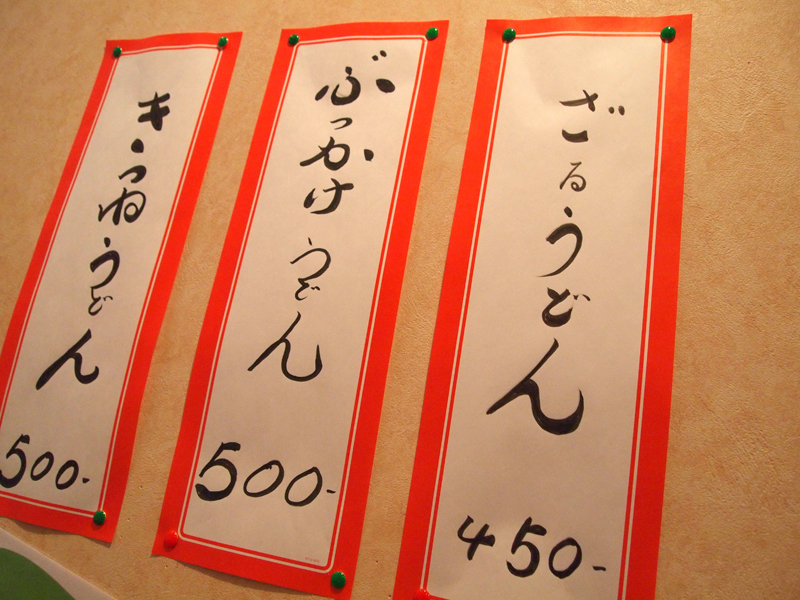 ざるうどん
450-
ぶっかけうどん
500-
きつねうどん
500-